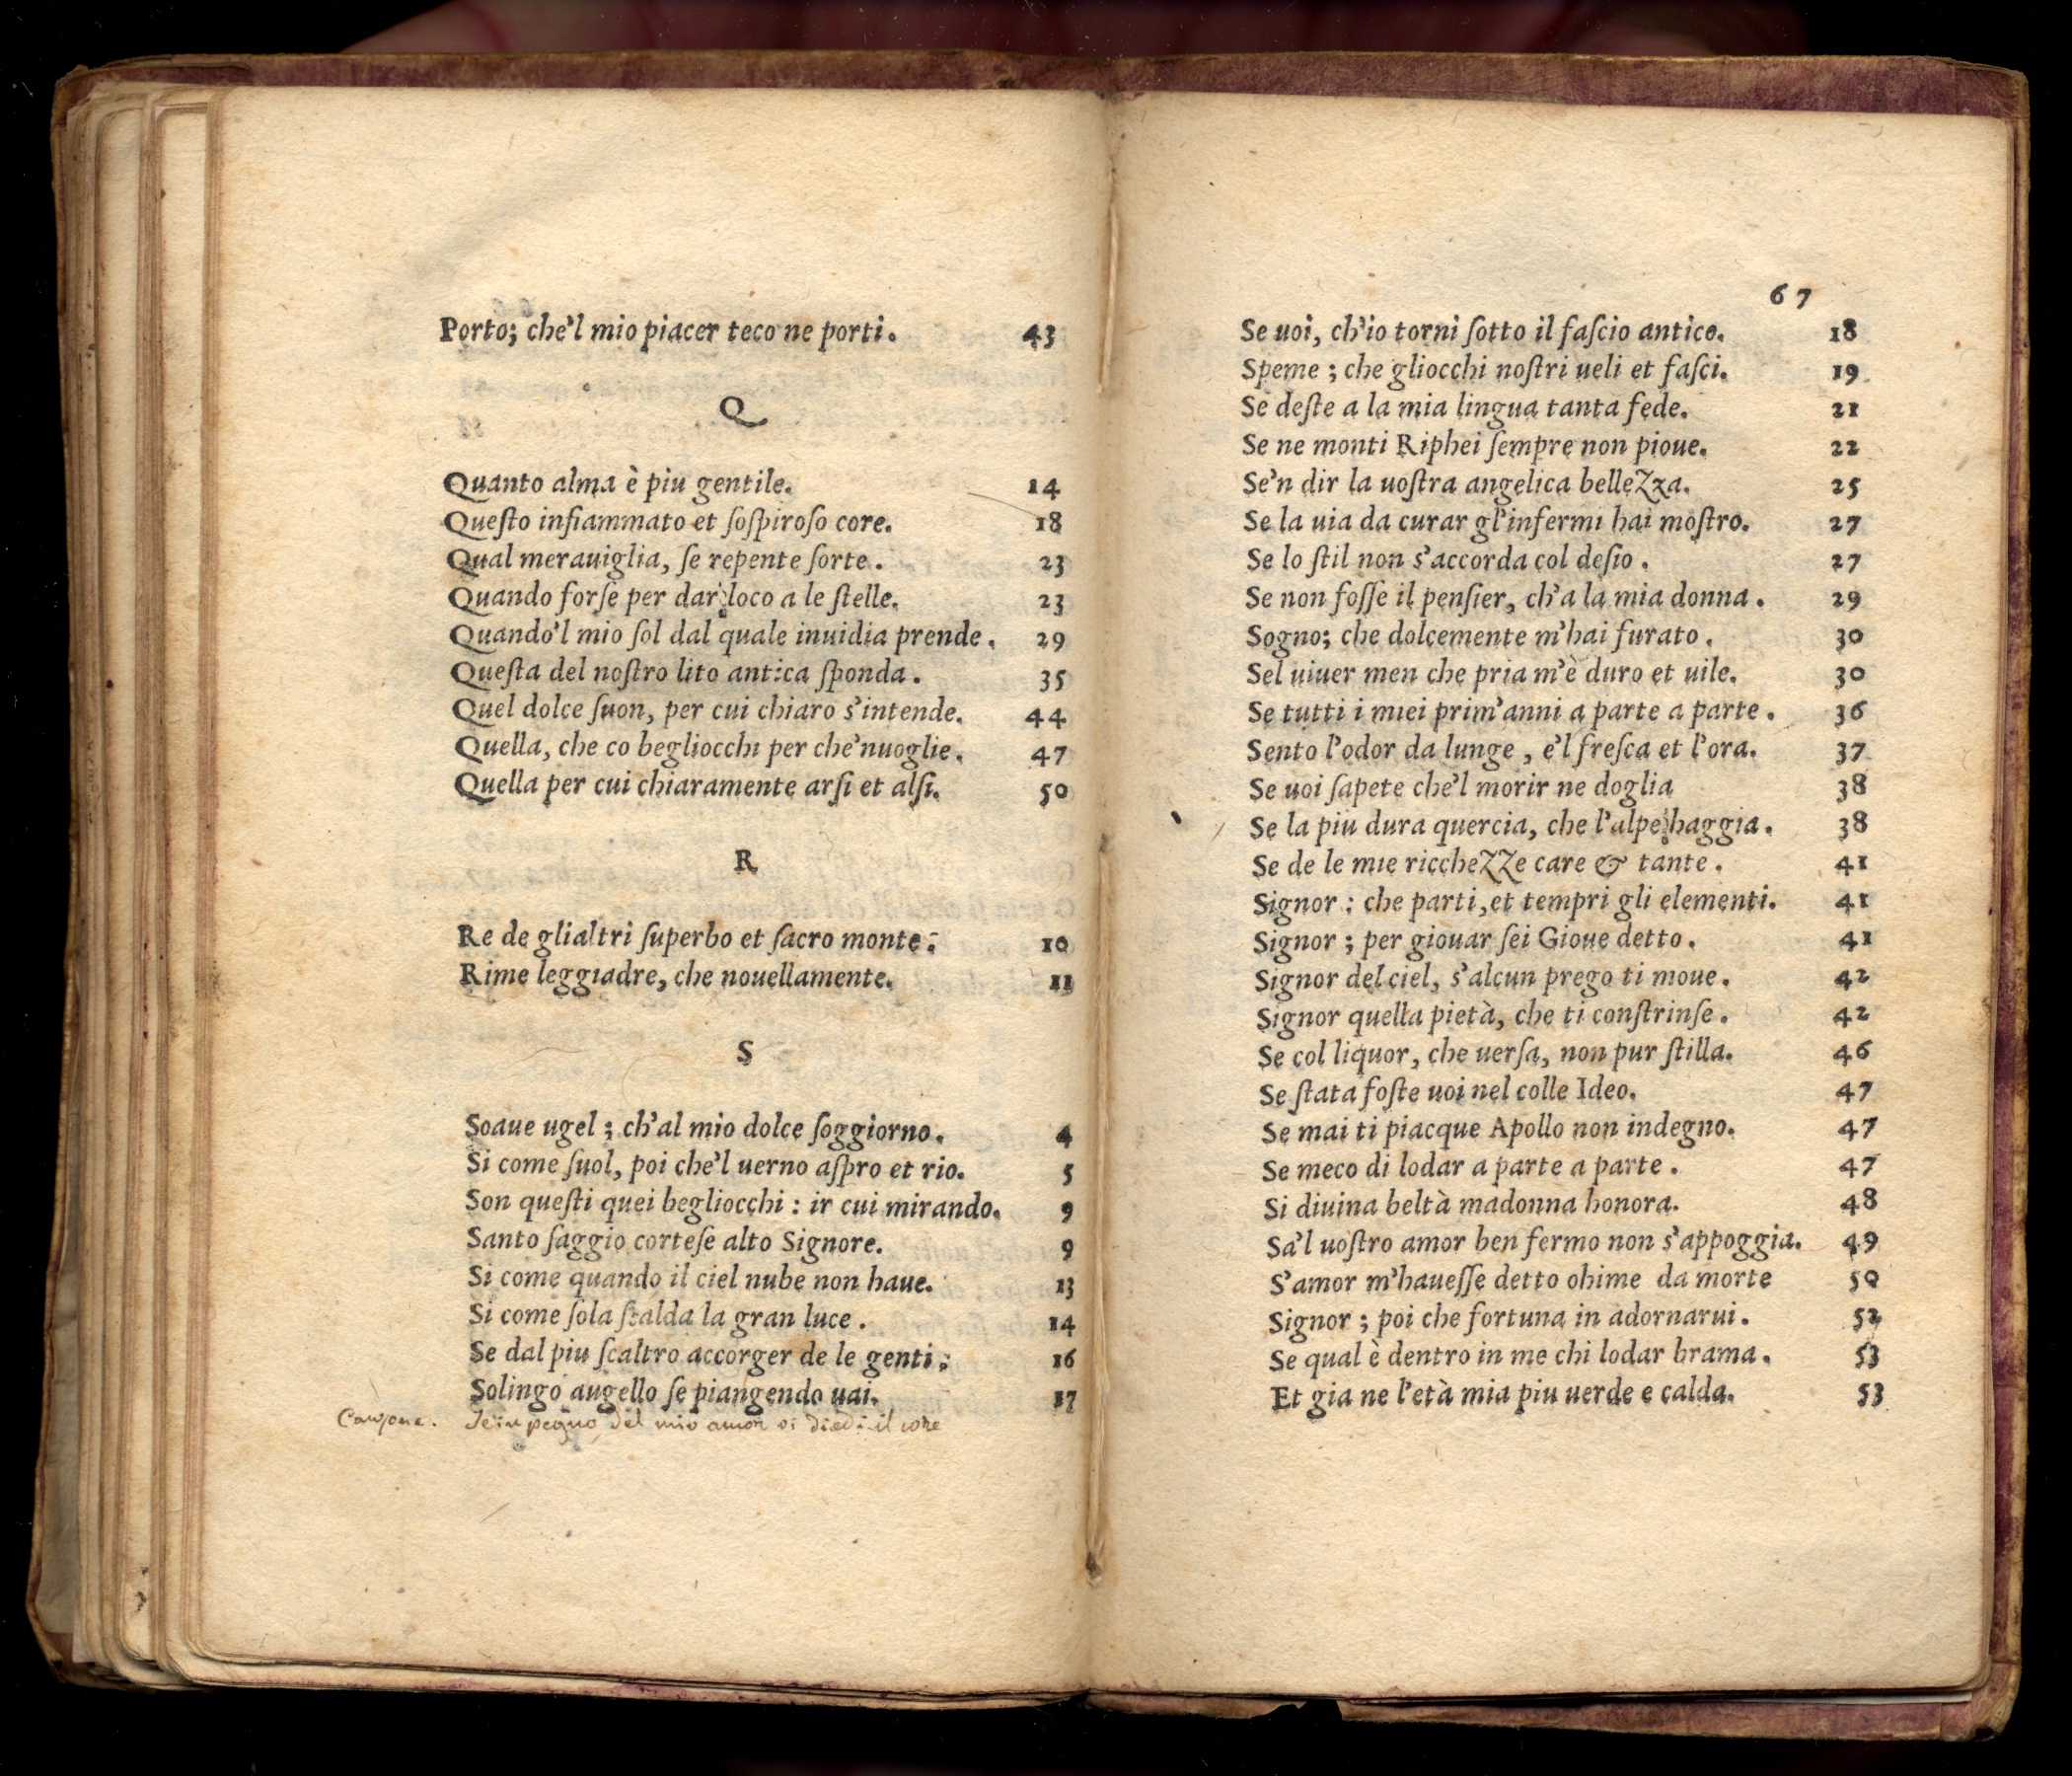 Porto; che'l mio piacer teco ne porti. 43
Q
Quanto alma è piu gentile. 14
Queſto infiammato et ſoſpiroſo core. 18
Qual merauiglia, ſe repente ſorte. 23
Quando forſe per dar loco a le ſtelle. 23
Quando'l mio ſol dal quale inuidia prende. 29
Queſta del noſtro lito antica ſponda. 35
Quel dolce ſuon, per cui chiaro s'intende. 44
Quella, che co begliocchi per che'nuoglie. 47
Quella per cui chiaramente arſi et alſi. 50
R
Re de glialtri ſuperbo et ſacro monte: 10
Rime leggiadre, che nouellamente. 11
S
Soaue ugel; ch'al mio dolce ſoggiorno. 4
Si come ſuol, poi che'l uerno aſpro et rio. 5
Son queſti quei begliocchi: ir cui mirando. 9
Santo ſaggio corteſe alto Signore. 9
Si come quando il ciel nube non haue. 13
Si come ſola ſcalda la gran luce. 14
Se dal piu ſcaltro accorger de le genti; 16
Solingo augello ſe piangendo uai. 17
Canzone. Se in pegno del mio amor vi diedi il core
67
Se uoi, ch'io torni ſotto il faſcio antico. 18
Speme; che gliocchi noſtri ueli et faſci. 19
Se deſte a la mia lingua tanta fede. 21
Se ne monti Riphei ſempre non pioue. 22
Se'n dir la uoſtra angelica bellezza. 25
Se la uia da curar gl'infermi hai moſtro. 27
Se lo ſtil non s'accorda col deſio. 27
Se non foſſe il penſier, ch'a la mia donna. 29
Sogno; che dolcemente m'hai furato. 30
Sel uiuer men che pria m'è duro et uile. 30
Se tutti i miei prim'anni a parte a parte. 36
Sento l'odor da lunge, e'l freſca et l'ora. 37
Se uoi ſapete che'l morir ne doglia 38
Se la piu dura quercia, che l'alpe haggia. 38
Se de le mie ricchezze care & tante. 41
Signor: che parti,et tempri gli elementi. 41
Signor; per giouar ſei Gioue detto. 41
Signor del ciel, s'alcun prego ti moue. 42
Signor quella pietà, che ti conſtrinſe. 42
Se col liquor, che uerſa, non pur ſtilla. 46
Se ſtata foſte uoi nel colle Ideo. 47
Se mai ti piacque Apollo non indegno. 47
Se meco di lodar a parte a parte. 47
Si diuina beltà madonna honora. 48
Sa'l uoſtro amor ben fermo non s'appoggia. 49
S'amor m'haueſſe detto ohime da morte 50
Signor; poi che fortuna in adornarui. 52
Se qual è dentro in me chi lodar brama. 53
Et gia ne l'età mia piu uerde e calda. 53